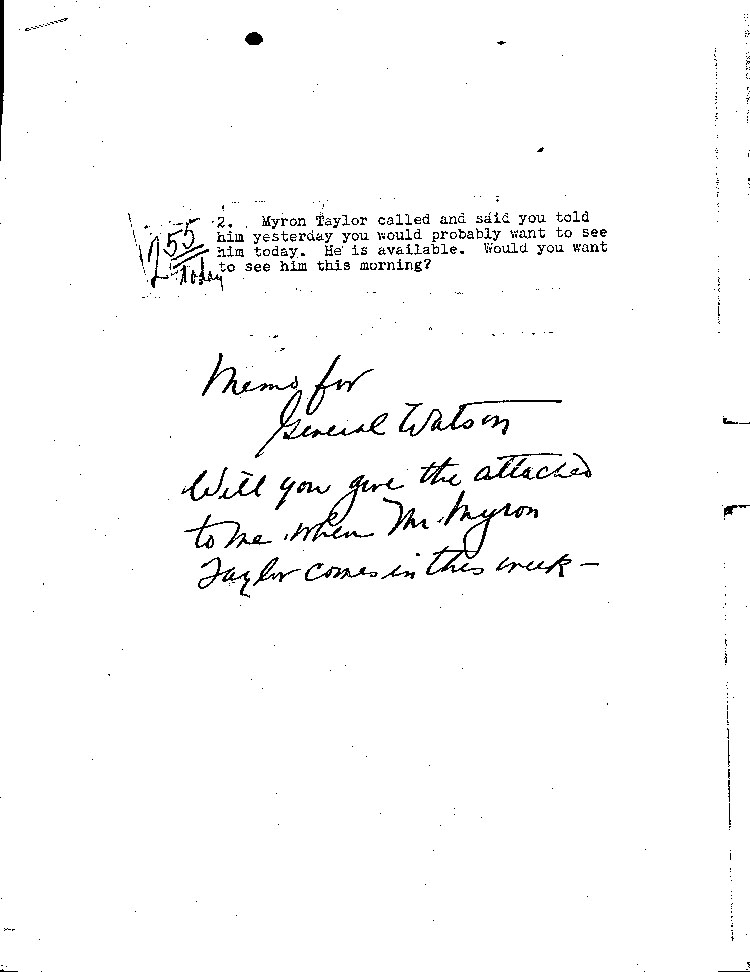 2. Myron Taylor called and said you told
him yesterday you would probably want to see
him today. He is available. Would you want
to see him this morning?
255
Today
Memo for
General Watson
Will you give the attached
to me when Mr. Myron
Taylor comes in this week –